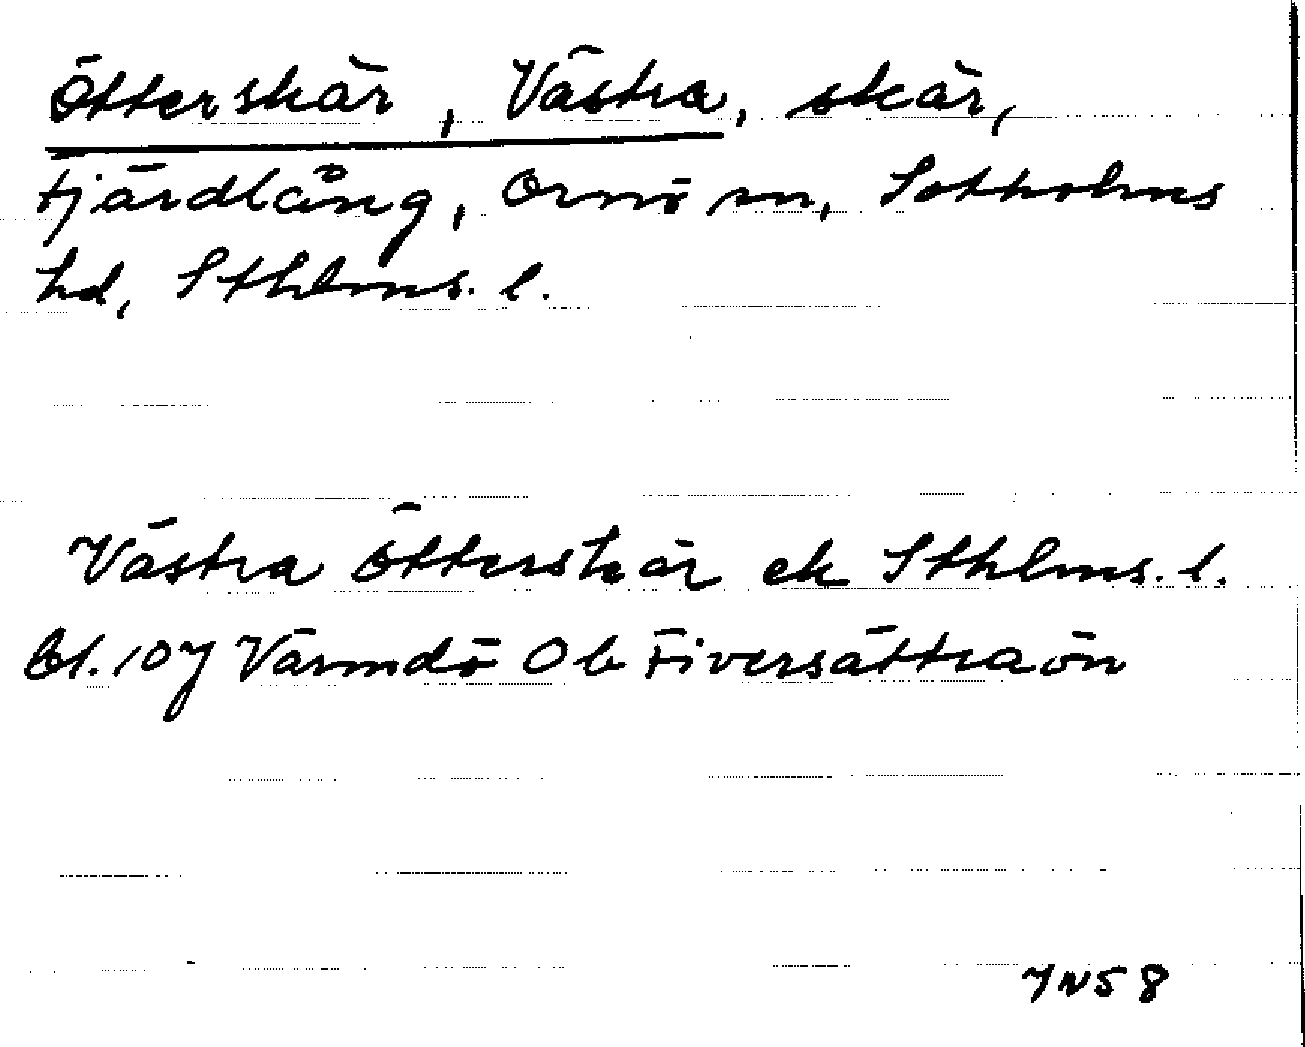 Ötterskär, Västra, skär,
Fjärdlång, Ornö sn, Sotholms
hd, Sthlms. l.
Västra Ötterskär ek Sthlms. l.
bl. 107 Värmdö Ob Fiversättraön
JN58